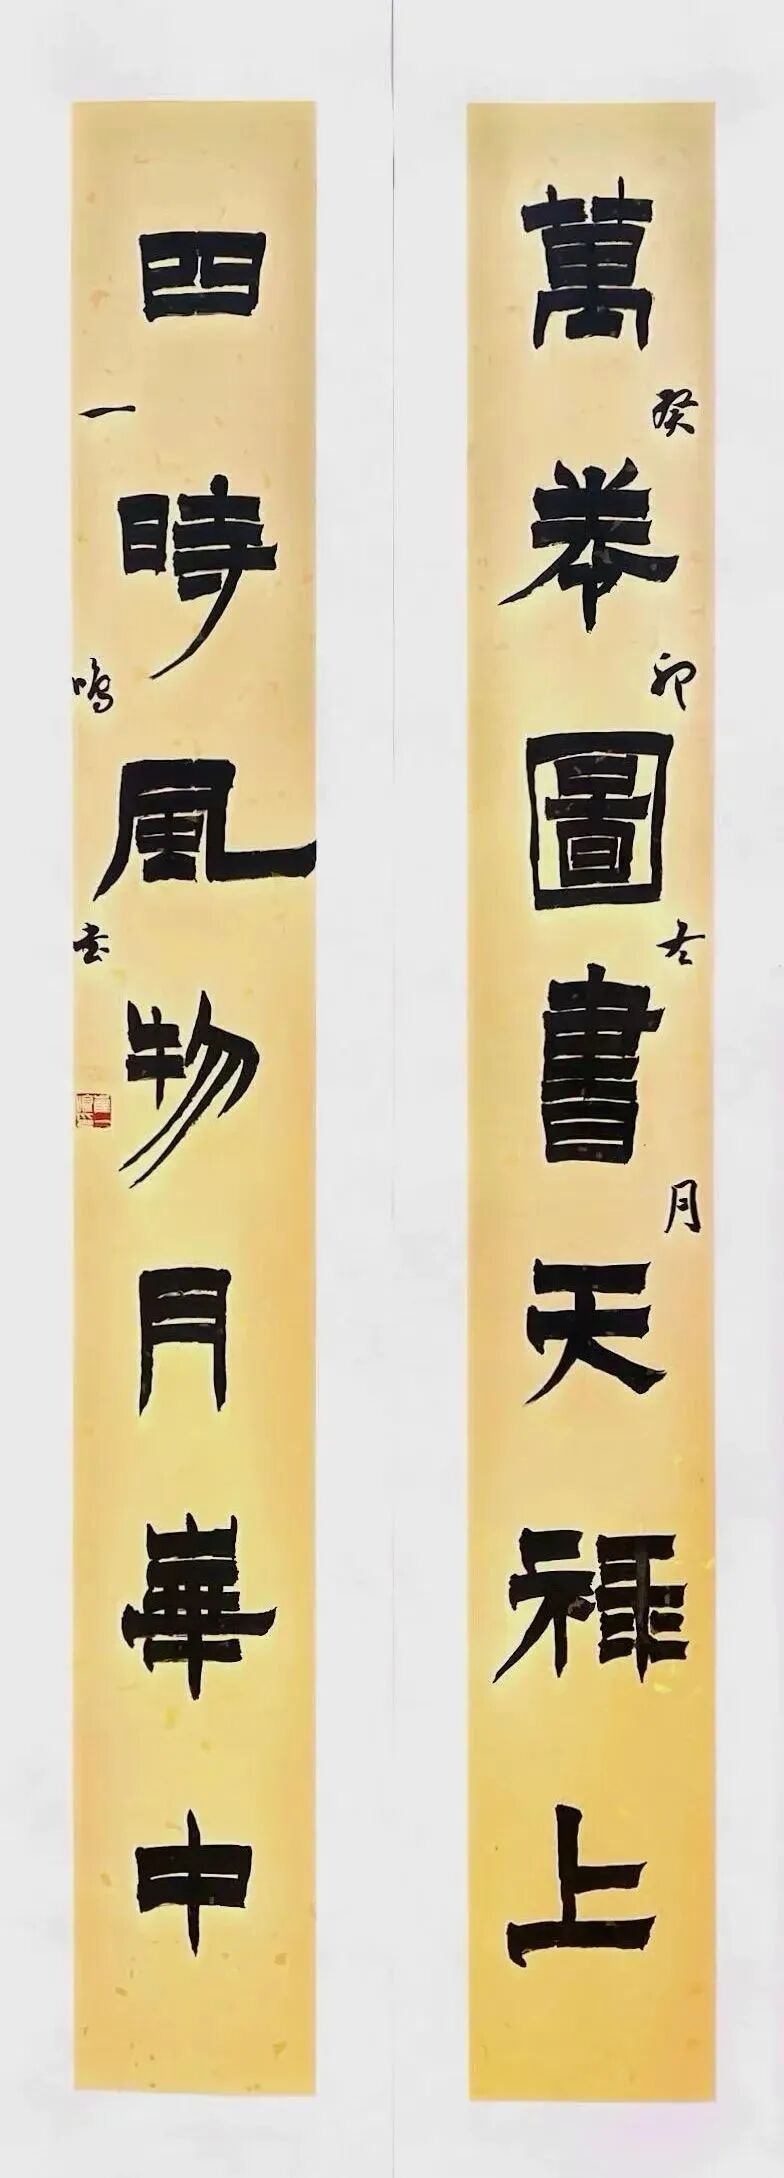 萬卷圖書天禄上
癸卯冬月
四時風物月華中
一鳴書